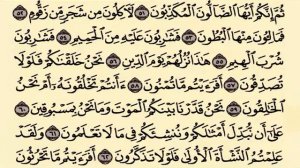 ثُمَّ إِنَّكُمْ أَيُّهَا ٱلضَّآلُّونَ ٱلْمُكَذِّبُونَ ٥١ لَأٓكِلُونَ مِن شَجَرٍ مِّن زَقُّومٍ ٥٢
فَمَالِـُٔونَ مِنْهَا ٱلْبُطُونَ ٥٣ فَشَٰرِبُونَ عَلَيْهِ مِنَ ٱلْحَمِيمِ ٥٤ فَشَٰرِبُونَ
شُرْبَ ٱلْهِيمِ ٥٥ هَٰذَا نُزُلُهُمْ يَوْمَ ٱلدِّينِ ٥٦ نَحْنُ خَلَقْنَٰكُمْ فَلَوْلَا
تُصَدِّقُونَ ٥٧ أَفَرَءَيْتُم مَّا تُمْنُونَ ٥٨ ءَأَنتُمْ تَخْلُقُونَهُۥٓ أَمْ نَحْنُ
ٱلْخَٰلِقُونَ ٥٩ نَحْنُ قَدَّرْنَا بَيْنَكُمُ ٱلْمَوْتَ وَمَا نَحْنُ بِمَسْبُوقِينَ ٦٠
عَلَىٰٓ أَن نُّبَدِّلَ أَمْثَٰلَكُمْ وَنُنشِئَكُمْ فِى مَا لَا تَعْلَمُونَ ٦١ وَلَقَدْ
عَلِمْتُمُ ٱلنَّشْأَةَ ٱلْأُولَىٰ فَلَوْلَا تَذَكَّرُونَ ٦٢ أَفَرَءَيْتُم مَّا تَحْرُثُونَ